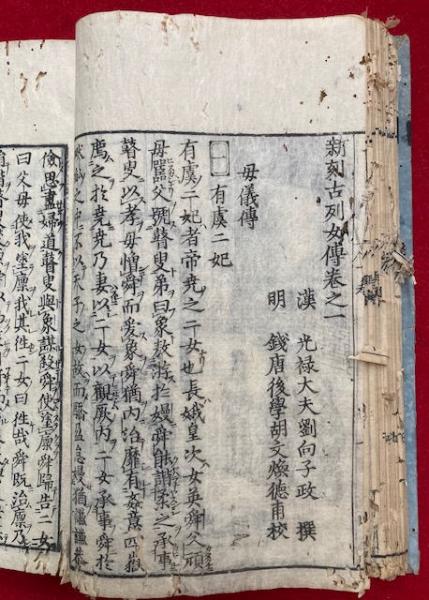 新刻古列女傳卷之一
漢 光禄大夫劉向子政 撰
明 錢唐後學胡文煥德甫校
母儀傳
一 有虞二妃
有虞二妃者帝堯之二女也長娥皇次女英舜父頑
母嚚父號瞽叟弟曰象敖游於嫚舜能諧柔之承事
瞽叟以孝母憎舜而愛象舜猶内治靡有姦意四嶽
薦之於堯堯乃妻以二女以觀厥内二女承事舜於
畎畝之中不以天子之女故而驕盈怠嫚猶謙謙恭
儉思盡婦道瞽叟與象謀殺舜使塗廪舜歸告二女
曰父母使我塗廪我其往二女曰往哉舜既治廪乃